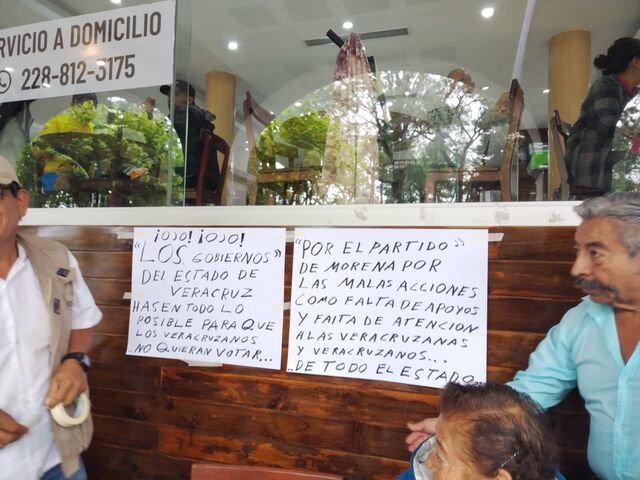 RVICIO A DOMICILIO
228-812-3175
¡OJO! ¡OJO!
"LOS GOBIERNOS"
DEL ESTADO DE
VERACRUZ
HASEN TODO LO
POSIBLE PARA QUE
LOS VERACRUZANOS
NO QUIERAN VOTAR...
"POR EL PARTIDO"
DE MORENA POR
LAS MALAS ACCIONES
COMO FALTA DE APOYOS
Y FALTA DE ATENCION
A LAS VERACRUZANAS
Y VERACRUZANOS...
..DE TODO EL ESTADO